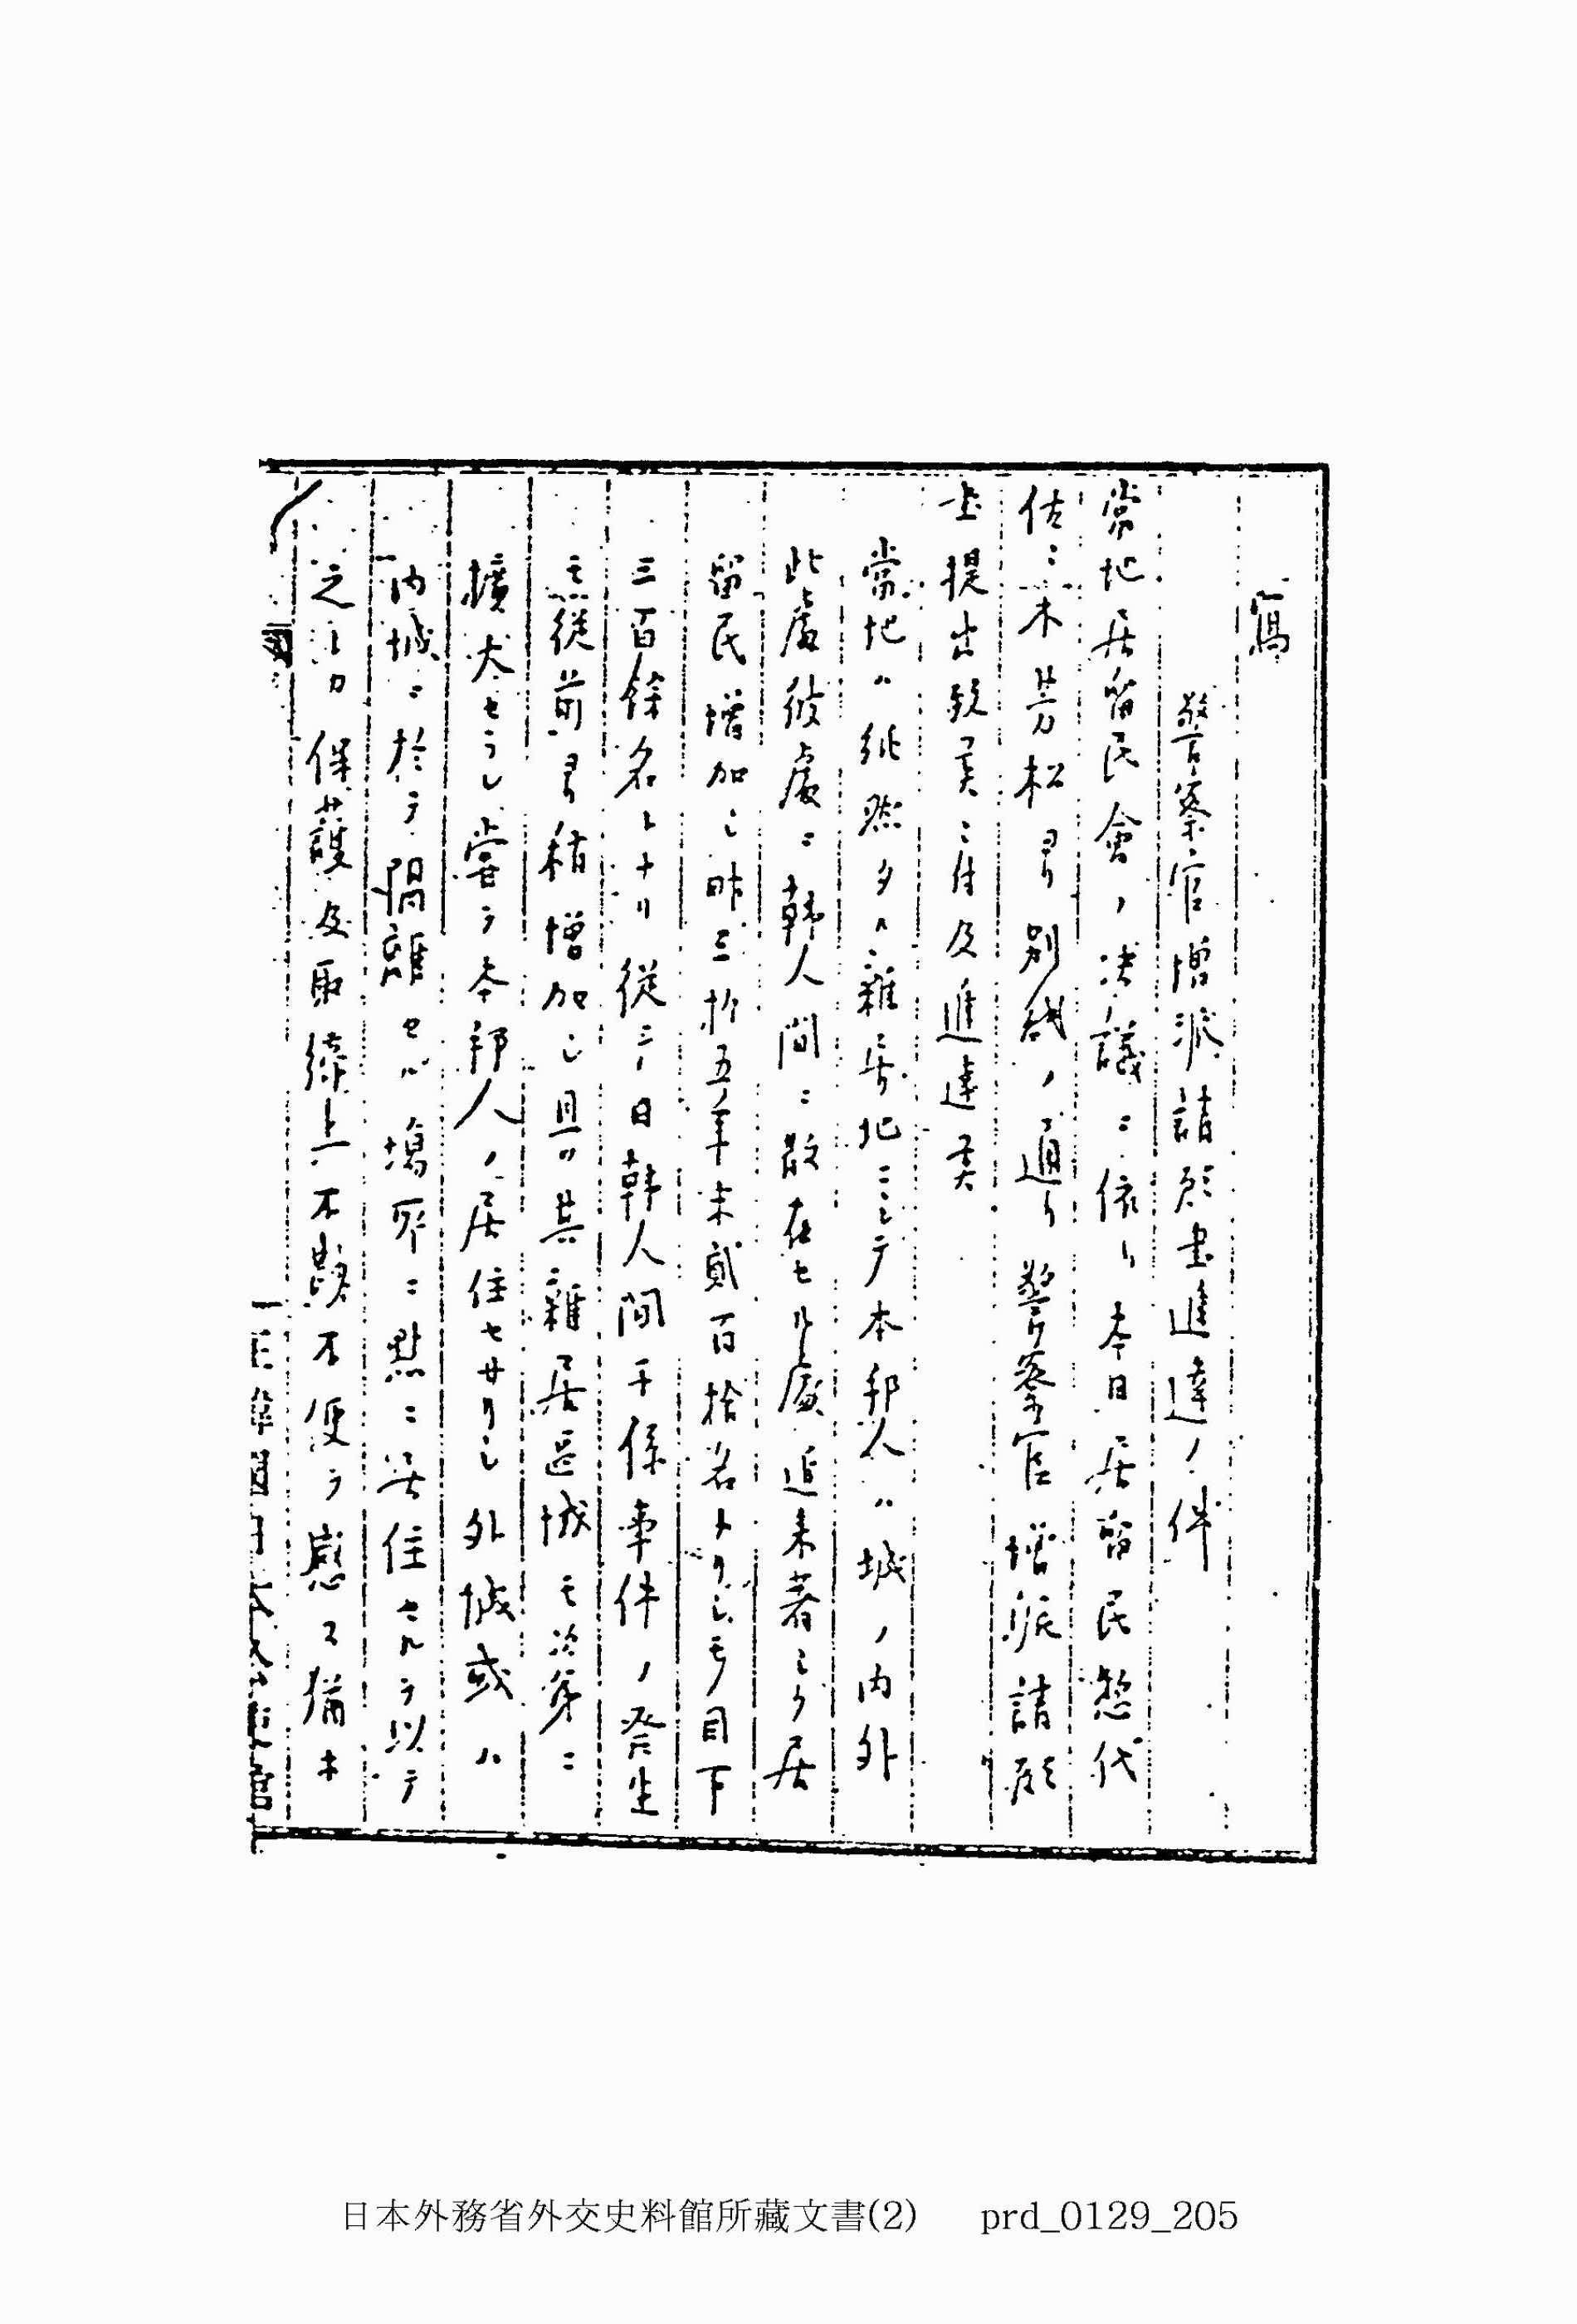 寫
警察官增派請願書進達ノ件
當地居留民會ノ決議ニ依リ本日居留民惣代
佐々木芳松ヨリ別紙ノ通リ警察官增派請願
書提出致候ニ付及進達候
當地ハ純然タル雜居地ニシテ本邦人ハ城ノ内外
此處彼處ニ韓人間ニ散在セル處近來著シク居
留民增加シ昨三拾五年末貳百拾名ナリシモ目下
三百餘名トナリ從テ日韓人間干係事件ノ發生
モ從前ヨリ稍增加シ且ツ其雜居區域モ次第ニ
擴大セラレ嘗テ本邦人ノ居住セサリシ外城或ハ
内城ニ於テ隔離セル場所ニ點々居住セルヲ以テ
之レカ保護及取締上不尠不便ヲ感シ猶ホ
在韓國日本公使館
日本外務省外交史料館所藏文書(2) prd_0129_205